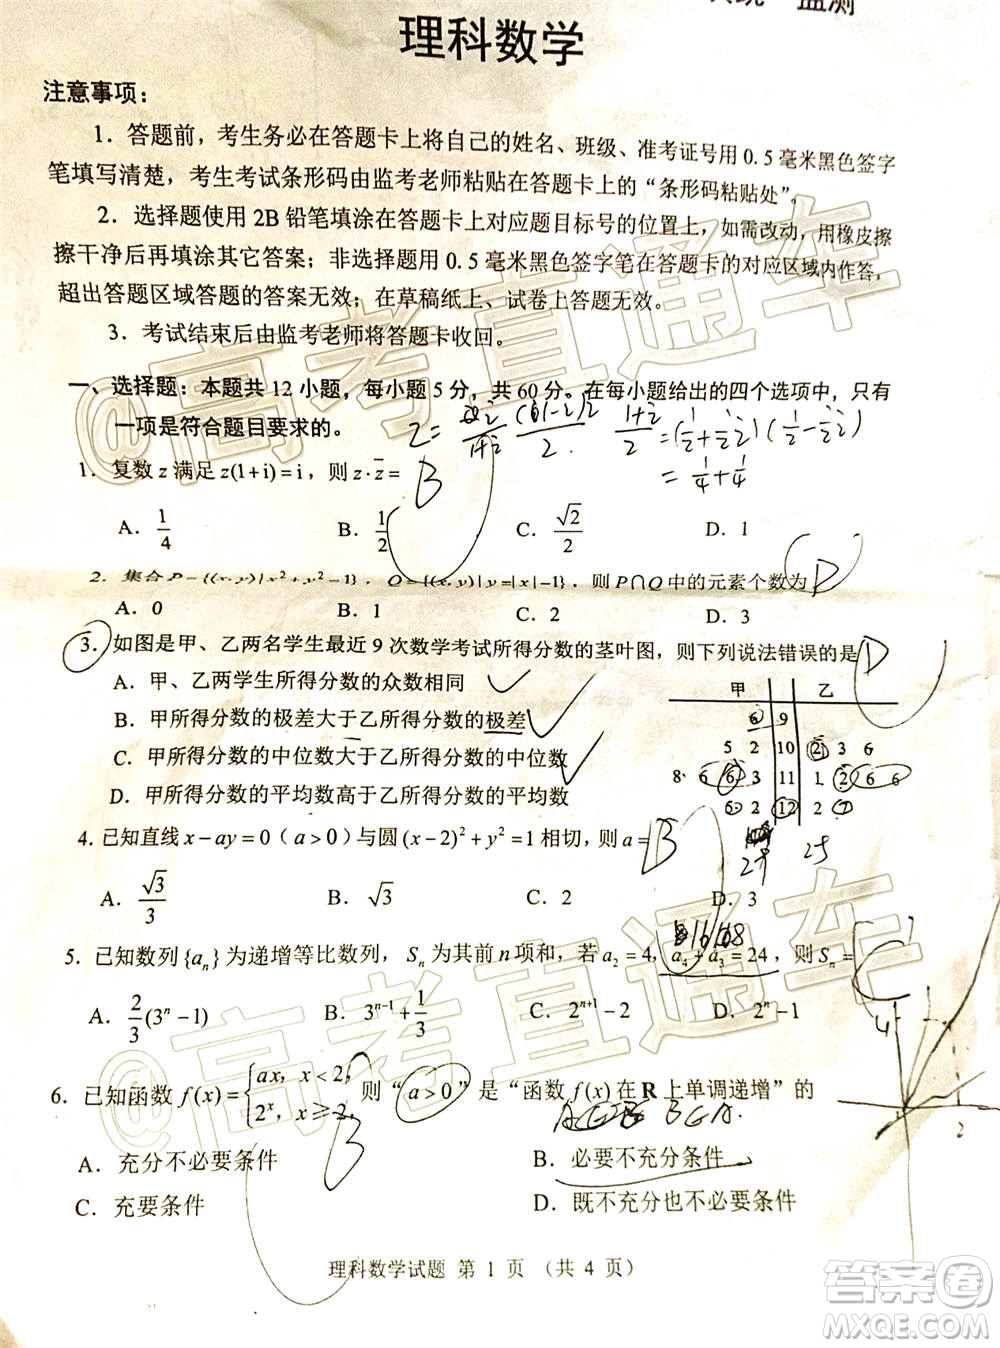 监测
理科数学
注意事项：
1．答题前，考生务必在答题卡上将自己的姓名、班级、准考证号用 0.5 毫米黑色签字
笔填写清楚，考生考试条形码由监考老师粘贴在答题卡上的“条形码粘贴处”。
2．选择题使用 2B 铅笔填涂在答题卡上对应题目标号的位置上，如需改动，用橡皮擦
擦干净后再填涂其它答案；非选择题用 0.5 毫米黑色签字笔在答题卡的对应区域内作答，
超出答题区域答题的答案无效；在草稿纸上、试卷上答题无效。
3．考试结束后由监考老师将答题卡收回。
一、选择题：本题共 12 小题，每小题 5 分，共 60 分。在每小题给出的四个选项中，只有
一项是符合题目要求的。
1．复数 z 满足 z(1+i)=i，则 z·z̄= B
A．1/4 B．1/2 C．√2/2 D．1
2．集合 P={(x,y)|x²+y²=1}，Q={(x,y)|y=|x|-1}，则 P∩Q 中的元素个数为 D
A．0 B．1 C．2 D．3
3．如图是甲、乙两名学生最近 9 次数学考试所得分数的茎叶图，则下列说法错误的是 D
A．甲、乙两学生所得分数的众数相同
B．甲所得分数的极差大于乙所得分数的极差
C．甲所得分数的中位数大于乙所得分数的中位数
D．甲所得分数的平均数高于乙所得分数的平均数
甲 乙
6 9
5 2 10 2 3 6
8 6 6 3 11 1 2 6 6
6 2 12 2
4．已知直线 x-ay=0（a>0）与圆 (x-2)²+y²=1 相切，则 a= B
A．√3/3 B．√3 C．2 D．3
5．已知数列 {aₙ} 为递增等比数列，Sₙ 为其前 n 项和，若 a₂=4，a₄+a₃=24，则 Sₙ= C
A．2/3(3ⁿ-1) B．3ⁿ⁻¹+1/3 C．2ⁿ⁺¹-2 D．2ⁿ-1
6．已知函数 f(x)={ax，x<2，2ˣ，x≥2，则“a>0”是“函数 f(x) 在 R 上单调递增”的
A．充分不必要条件 B．必要不充分条件
C．充要条件 D．既不充分也不必要条件
理科数学试题 第 1 页 （共 4 页）
@高考直通车
@高考直通车
答案卷
MXQE.COM